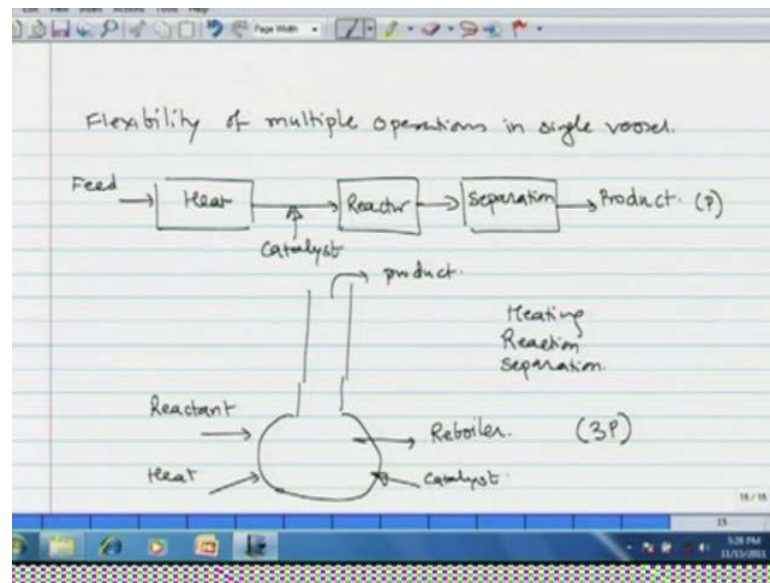 Page Width
Flexibility of multiple operations in single vessel.
Feed
Heat
Reactor
Separation
Product. (P)
Catalyst
product.
Heating
Reaction
Separation.
Reactant
Reboiler.
(3P)
Heat
Catalyst.
15/15
15
5:28 PM
11/15/2011